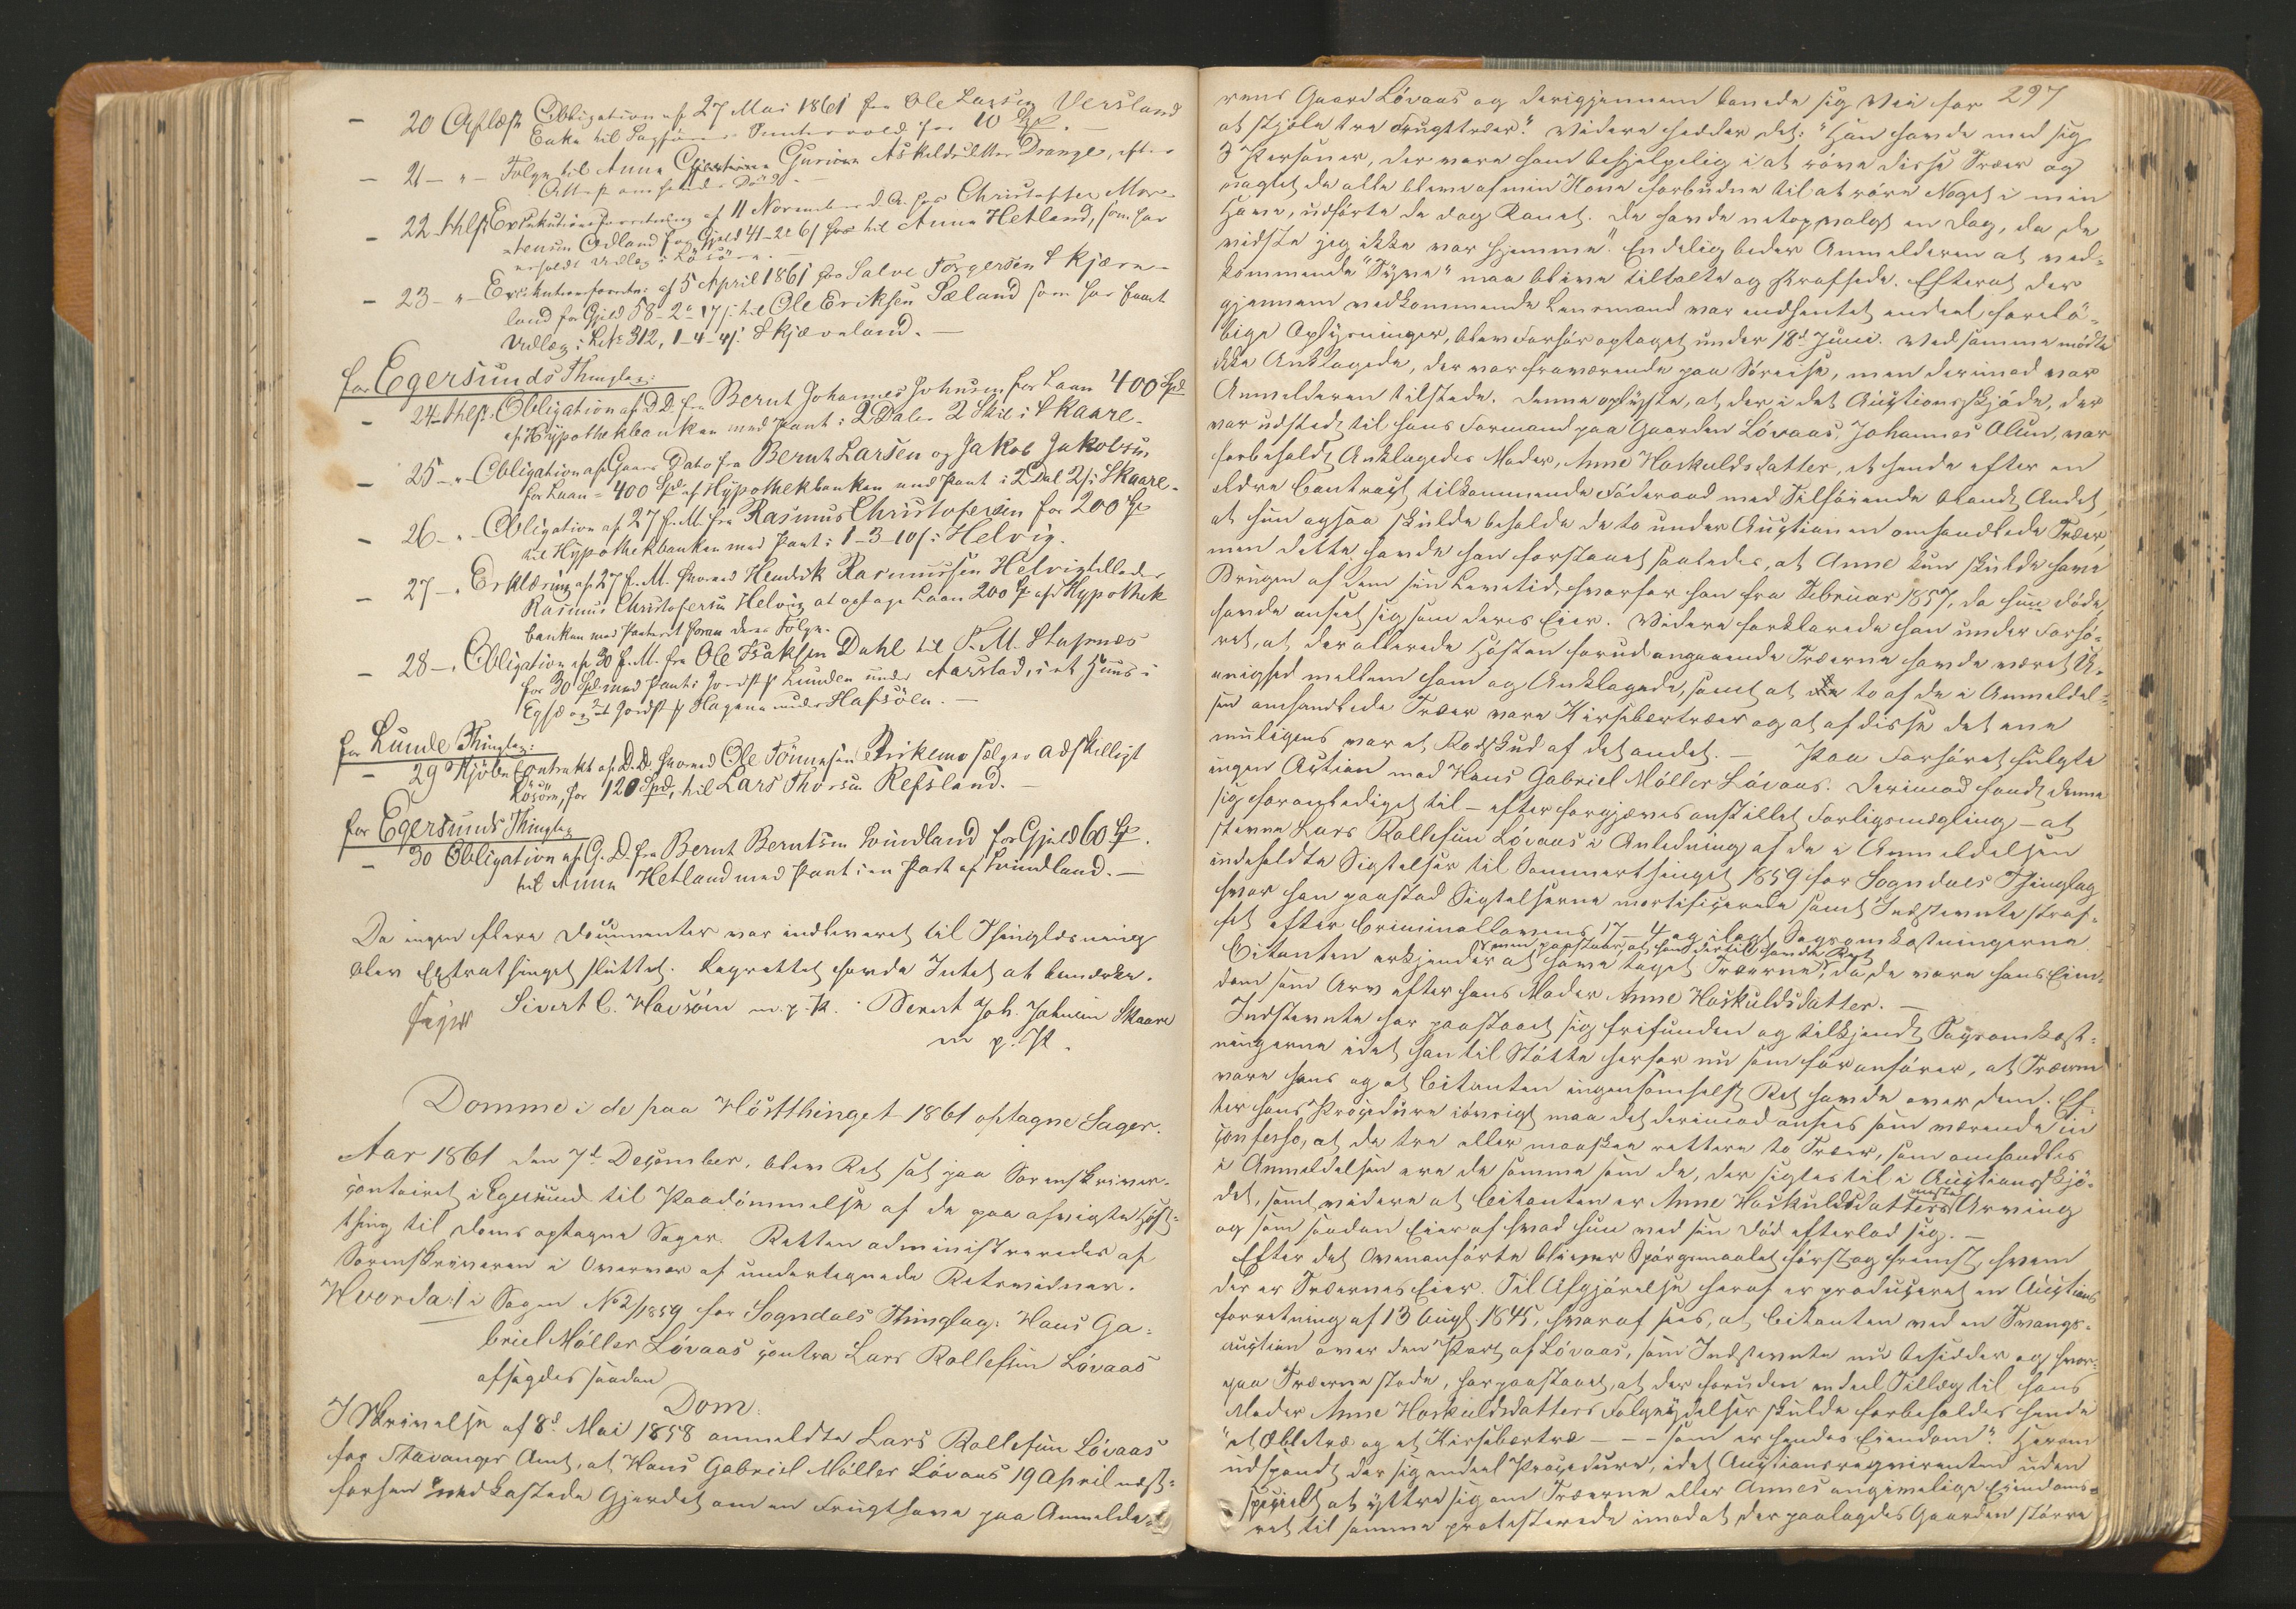 - 20 Aflæst Obligation af 27 Mai 1861 fra Ole Larsen Versland
Enke til Sagfører Sunternold for 10 Spd. -
- 21 - " - Folge til Anna Christina Gurine Askildsdatter Drange, efter
Attest om hendes Død. -
- 22 thlst Exekutionsforretning af 11 November d. A. hos Christoffer Mor-
tensen Adland for Gjeld 41-2-6 ß til Anna Hetland, som har
erholdt Udlæg i Løsøre. -
- 23 - " - Exekutionsforretn: af 5 April 1861 hos Salve Torgersen Skjæve-
land for Gjeld 58-2-17 ß til Ole Eriksen Sæland som har faaet
Udlæg i LNr 312, 1-4-4 ß Skjæveland. -
for Egersunds Thinglag:
- 24 thlst Obligation af D.D. fra Bernt Johannes Johnsen for Laan 400 Spd
af Hypothekbanken med Pant i 2 Daler 2 Skil: i Skaare.
- 25 - " - Obligation af Gaars Dato fra Bernt Larsen og Jakob Jakobsen
for Laan = 400 Spd af Hypothekbanken med Pant i 2 Dal 2 ß i Skaare.
- 26 - " - Obligation af 27 f. M. fra Rasmus Christofersen for 200 Spd
til Hypothekbanken med Pant i 1-3-10 ß i Helvig.
- 27 - " Erklæring af 27 f. M. hvorved Hendrik Rasmussen Helvig tillader
Rasmus Christofersen Helvig at optage Laan 200 Spd af Hypothek
banken med Prioritet foran dens Folge.
- 28 - " Obligation af 30 f. M. fra Ole Isaksen Dahl til P. M. Stapnæs
for 30 Spd med Pant i Jordst p Lunden under Aarstad, i et Huus i
Egsd og et Jordst p Hagene under Hafsöen. -
for Lunde Thinglag:
- 29 Kjöbe Contrakt af D.D. hvorved Ole Tönnesen Birkemo sælger adskilligt
Lösöre, for 120 Spd, til Lars Thorsen Refsland. -
for Egersunds Thinglag
- 30 Obligation af G. D. fra Bernt Berntsen Svindland for Gjeld 60 Spd.
til Anna Hetland med Pant i en Part af Svindland. -
Da ingen flere Documenter var indleveret til Thinglæsning
blev Extrathinget sluttet. Lagrettet havde Intet at bemærke.
Sivert C. Havsöen m. p. P. Bernt Joh. Johnsen Skaare
m p. P.
Domme i de paa Hösttinget 1861 optagne Sager.
Aar 1861 den 7d December, blev Ret sat paa Sorenskriver-
contoiret i Egersund til Paadömmelse af de paa afvigte Höst-
thing til Doms optagne Sager. Retten administreredes af
Sorenskriveren i Overvær af undertegnede Retsvidner.
Hvorda: 1 i Sagen No 2/1859 for Sogndals Thinglag: Hans Ga-
briel Möller Lövaas contra Lars Rollefsen Lövaas
afsagdes saadan
Dom:
I Skrivelse af 8d Mai 1858 anmeldte Lars Rollefsen Lövaas
for Stavanger Amt, at Hans Gabriel Möller Lövaas 19 April næst-
forhen nedkastede Gjerdet om en Frugthave paa Anmelde-
297
rens Gaard Lövaas og derigjennem banede sig Vei for
at stjæle tre Frugttræer." Videre hedder det: "Han havde med sig
3 Personer, der vare ham behjelpelig i at röve disse Træer og
uagtet de alle bleve af min Kone forbudne til at röre Noget i min
Have, udförte de dog Ranet. De havde netop valgt en Dag, da de
vidste jeg ikke var hjemme". Endelig beder Anmelderen at ved-
kommende "Tyve" maa blive tiltalte og straffede. Efterat der
gjennem vedkommende Lensmand var indhentet endeel forelö-
bige Oplysninger, blev Forhör optaget under 18d Juni. Ved samme mödte
ikke Anklagede, der var fraværende paa Söreise, men derimod var
Anmelderen tilstede. Denne oplyste, at der i det Auctionsskjöde, der
var udstedt til hans Formand paa Gaarden Lövaas, Johannes Olsen, var
forbeholdt Anklagedes Moder, Anne Hoskuldsdatter, et hende efter en
ældre Contract tilkommende Föderaad med Tilföiende blandt Andet,
at hun ogsaa skulde beholde de to under Auctionen omhandlede Træer,
men dette havde han forstaaet saaledes, at Anne kun skulde have
Brugen af dem sin Levetid, hvorfor han fra Februar 1857, da hun döde,
havde anseet sig som deres Eier. Videre forklarede han under Forhö-
ret, at der allerede Hösten forud angaaende Træerne havde været U-
enighed mellem ham og Anklagede, samt at to af de i Anmeldel-
sen omhandlede Træer vare Kirsebertræer og at af disse det ene
muligens var et Rodskud af det andet. - Paa Forhöret fulgte
ingen Action mod Hans Gabriel Möller Lövaas. Derimod fandt denne
sig foranlediget til - efter forgjæves anstillet Forligsmægling - at
stevne Lars Rollefsen Lövaas i Anledning af de i Anmeldelsen
indeholdte Sigtelser til Sommerthinget 1859 for Sogndals Thinglag
hvor han paastod Sigtelserne mortificerede samt Indstevnte straf-
fet efter Criminallovens 17-4 og ilagt Sagsomkostningerne.
Citanten erkjender at have taget Træerne, men paastaar, at han dertil havde Ret, da de vare hans Eien-
dom som Arv efter hans Moder Anne Hoskuldsdatter. -
Indstevnte har paastaaet sig frifunden og tilkjendt Sagsomkost-
ningerne idet han til Stötte herfor nu som för anförer, at Træerne
vare hans og at Citanten ingensomhelst Ret havde over dem. Ef-
ter hans Procedure iövrigt maa det derimod ansees som værende in
confesso, at de tre eller maaskee rettere to Træer, som omhandles
i Anmeldelsen ere de samme som de, der sigtes til i Auctionsskjö-
det, samt videre at Citanten er Anne Hoskuldsdatters eneste Arving
og som saadan Eier af hvad hun ved sin Död efterlod sig. -
Efter det Ovenanförte bliver Spörgsmaalet först og fremst, hvem
der er Træernes Eier. Til Afgjörelse heraf er produceret en Auctions
forretning af 13 Augt. 1845, hvoraf sees, at Citanten ved en Tvangs-
auction over den Part af Lövaas, som Indstevnte nu besidder og hvor-
paa Træerne stode, har paastaaet, at der foruden endeel Tillæg til hans
Moder Anne Hoskuldsdatters Folgeydelser skulde forbeholdes hende
"et Æbletræ og et Kirsebærtræ - - - som er hendes Eiendom". Herom
udspandt der sig endeel Procedure, idet Auctionsreqvirenten uden
specielt at yttre sig om Træerne eller Annes angivelige Eiendoms-
ret til samme protesterede imod at der paalagdes Gaarden större